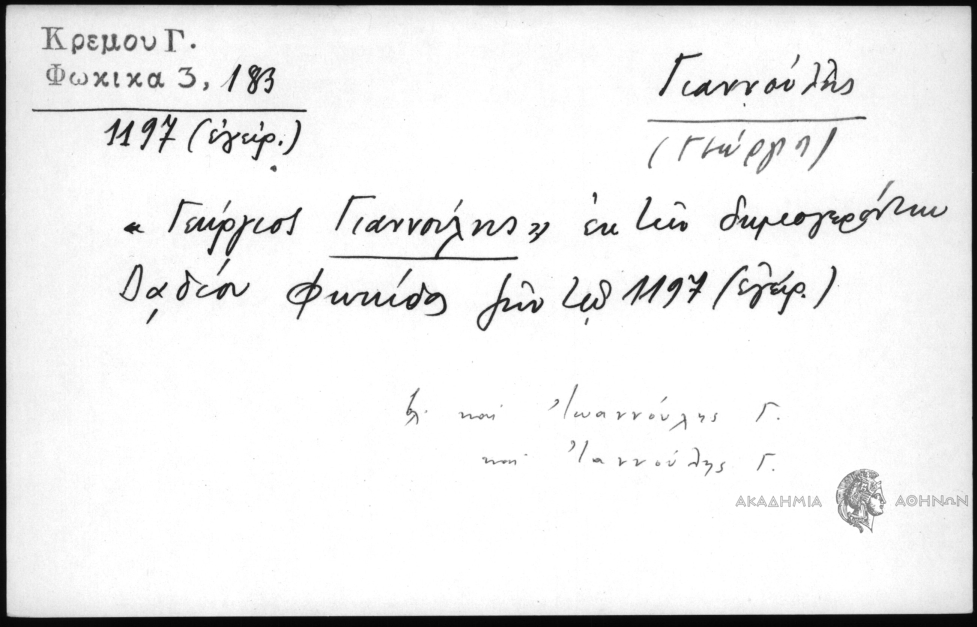 Κρεμου Γ.
Φωκικα 3, 183
1197 (ἐγείρ.)
Γιαννούλης
(Γεώργιος)
« Γεώργιος Γιαννούλης » ἐκ τῶν δημογερόντων
Δαδίου Φωκίδος
τοῦ 1197 (ἐγείρ.)
βλ. καὶ Ἰωαννούλης Γ.
καὶ Ἰαννούλης Γ.
ΑΚΑΔΗΜΙΑ ΑΘΗΝΩΝ